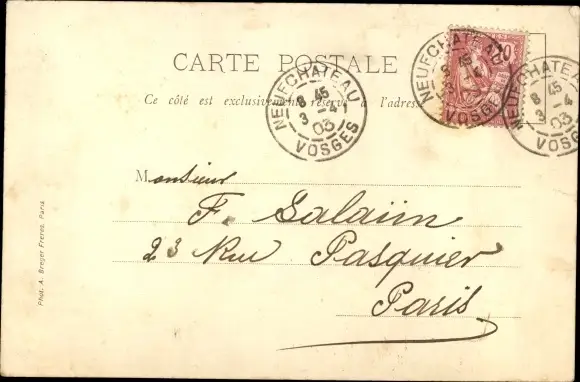 CARTE POSTALE
Ce côté est exclusivement réservé à l'adresse
NEUFCHATEAU
8 45
3 -4
03
VOSGES
NEUFCHATEAU
8 45
3 -4
VOSGES
10
NEUFCHATEAU
8 45
3 -4
03
VOSGES
Monsieur
F. Salaün
23 Rue Pasquier
Paris
Phot. A. Breger Freres, Paris